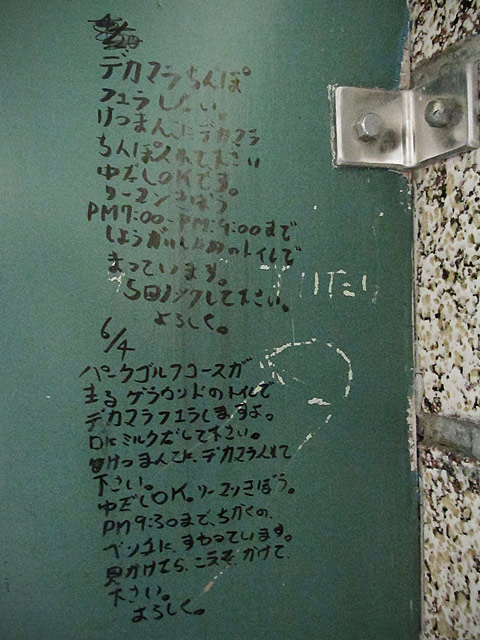 デカマラちんぽ
フェラしたい。
けつまんこにデカマラ
ちんぽ入れて下さい
ゆだしOKです。
リーマンきぼう
PM7:00-PM9:00まで
のトイレで
まっています。
5回ノックして下さい。
よろしく。
6/4
パークゴルフコースが
まるグラウンドのトイレで
デカマラフェラしますよ。
口にミルクだして下さい。
けつまんこに、デカマラ入れて
下さい。
ゆだしOK。リーマンきぼう。
PM9:30まで、ちかくの、
ベンチに、すわっています。
見かけたら、こえを、かけて、
下さい。
よろしく。